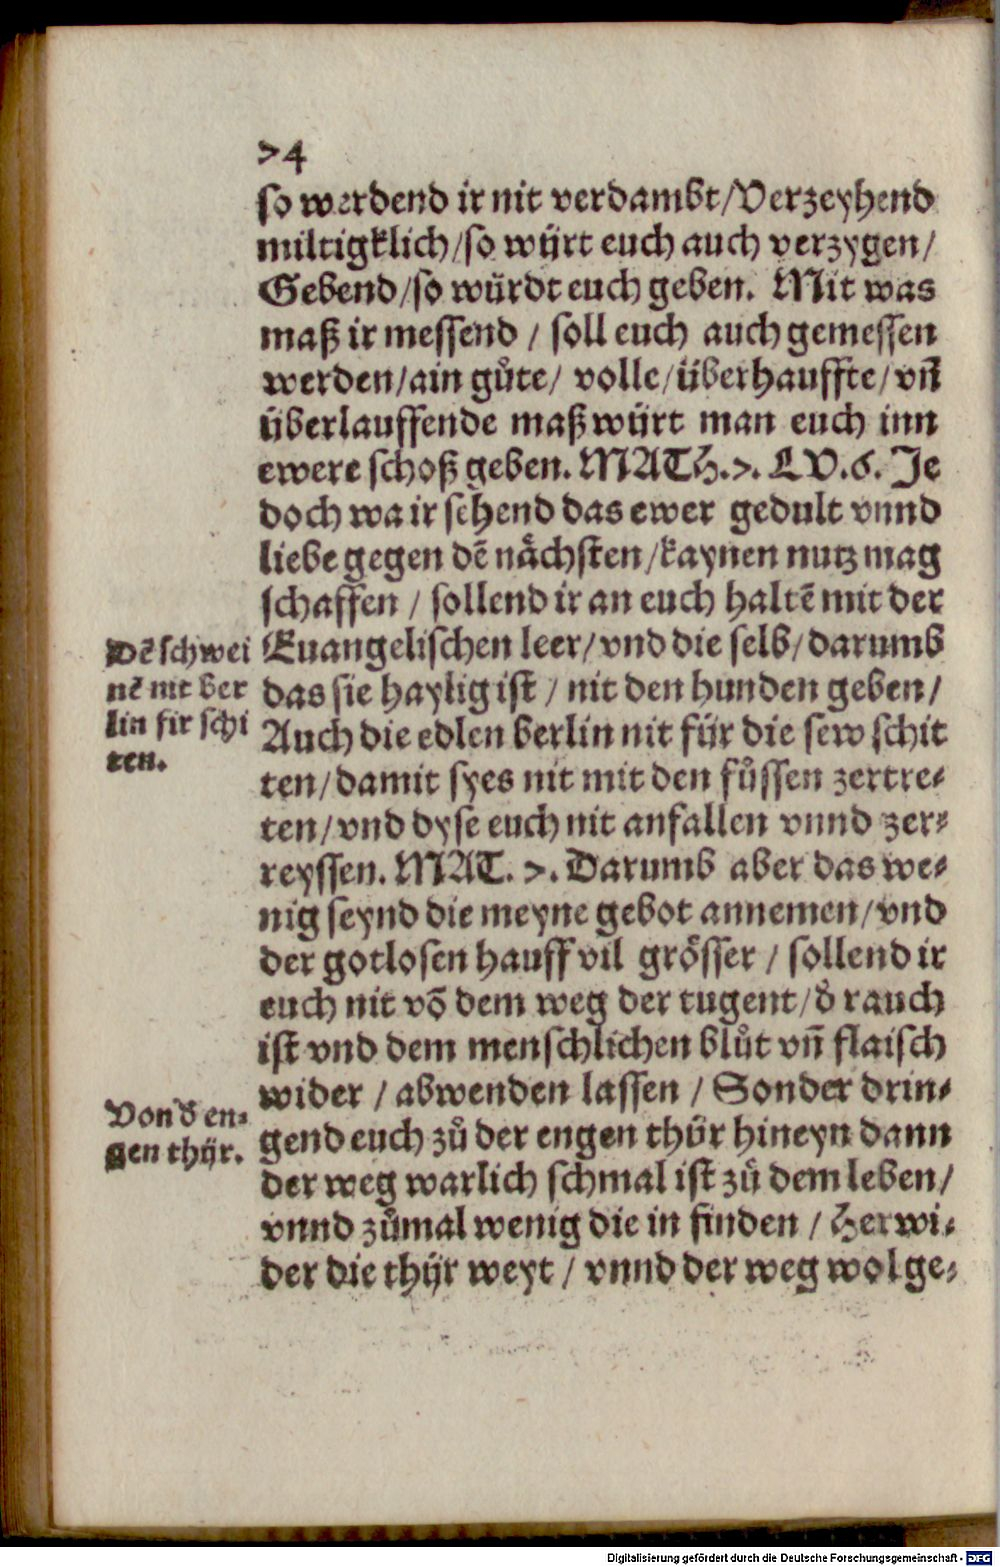 74
so werdend ir nit verdambt/Verzeyhend
miltigklich/so würt euch auch verzygen/
Gebend/so würdt euch geben. Mit was
maß ir messend / soll euch auch gemessen
werden/ain gůte/ volle/überhauffte/vñ
überlauffende maß würt man euch inn
ewere schoß geben. MATH.7. LV.6. Je
doch wa ir sehend das ewer gedult vnnd
liebe gegen dē nächsten/kaynen nutz mag
schaffen / sollend ir an euch haltē mit der
Euangelischen leer/vnd die selb/darumb
das sie haylig ist / nit den hunden geben/
Auch die edlen berlin nit für die sew schit
ten/damit syes nit mit den fůssen zertre⸗
ten/vnd dyse euch nit anfallen vnnd zer⸗
reyssen. MAT. 7. Darumb aber das we⸗
nig seynd die meyne gebot annemen/vnd
der gotlosen hauff vil grösser / sollend ir
euch nit võ dem weg der tugent/d̓ rauch
ist vnd dem menschlichen blůt vñ flaisch
wider / abwenden lassen / Sonder drin⸗
gend euch zů der engen thür hineyn dann
der weg warlich schmal ist zů dem leben/
vnnd zůmal wenig die in finden / Herwi⸗
der die thür weyt / vnnd der weg wol ge⸗
Dē schwei
nē nit ber
lin fir schi
ten.
Von d̓ en⸗
gen thür.
Digitalisierung gefördert durch die Deutsche Forschungsgemeinschaft - DFG